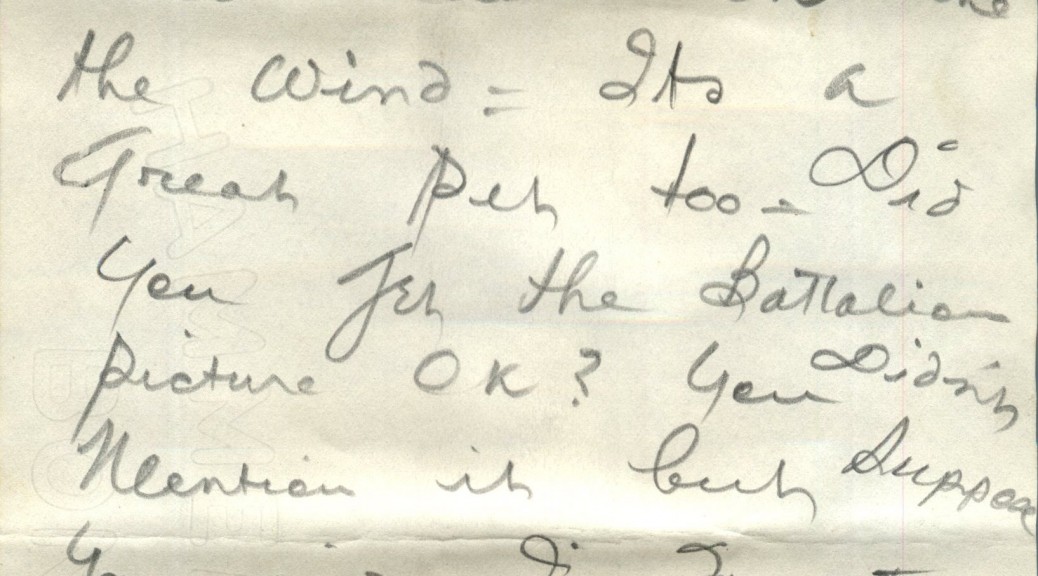 the Wind = Its a
Great Pet too = Did
You Get the Battalion
picture OK? You Didn't
Mention it but Suppose